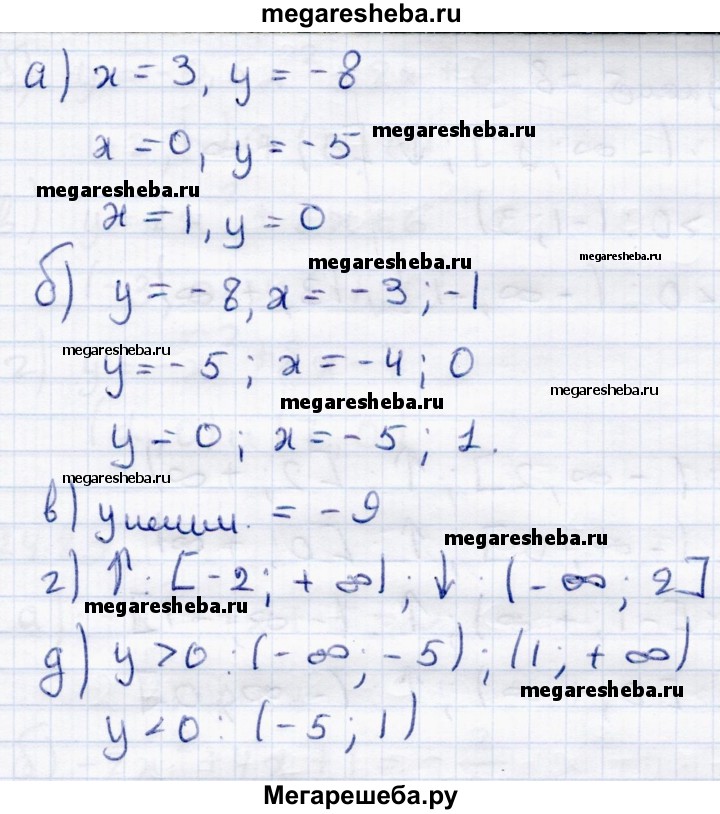 megaresheba.ru
а) x = 3, y = -8
x = 0, y = -5
megaresheba.ru
megaresheba.ru
x = 1, y = 0
megaresheba.ru
megaresheba.ru
б) y = -8, x = -3; -1
megaresheba.ru
y = -5; x = -4; 0
megaresheba.ru
megaresheba.ru
y = 0; x = -5; 1.
megaresheba.ru
в) y наим. = -9
megaresheba.ru
г) ↑: [-2; +∞); ↓: (-∞; 2]
megaresheba.ru
д) y > 0: (-∞; -5); (1; +∞)
megaresheba.ru
y < 0: (-5; 1)
Мегарешеба.ру